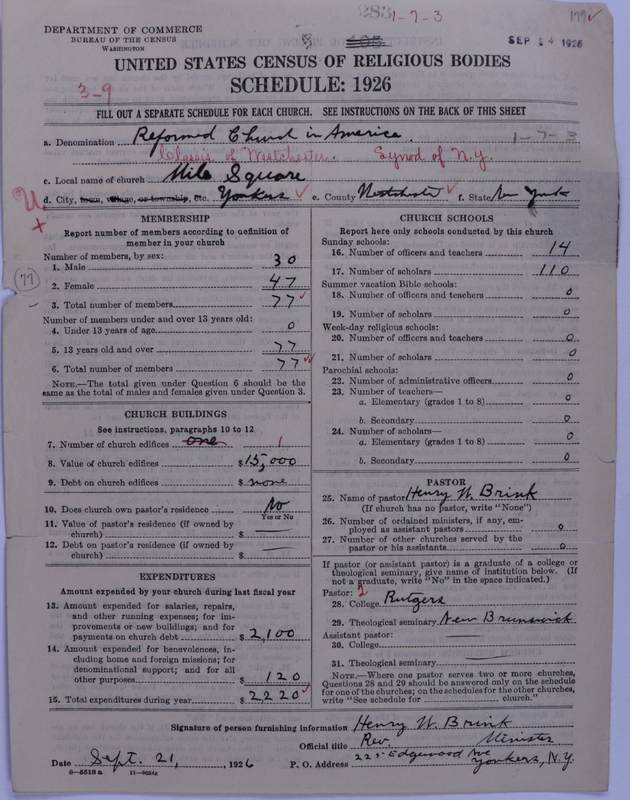 283
1-7-3
177
DEPARTMENT OF COMMERCE
BUREAU OF THE CENSUS
WASHINGTON
SEP 24 1926
UNITED STATES CENSUS OF RELIGIOUS BODIES
SCHEDULE: 1926
3-9
FILL OUT A SEPARATE SCHEDULE FOR EACH CHURCH. SEE INSTRUCTIONS ON THE BACK OF THIS SHEET
a. Denomination Reformed Church in America. 1-7-3
Classis of Westchester. Synod of N.Y.
c. Local name of church Mile Square
d. City, town, village, or township, etc. Yonkers e. County Westchester f. State New York
U
MEMBERSHIP
Report number of members according to definition of
member in your church
Number of members, by sex:
1. Male 30
2. Female 47
77
3. Total number of members 77
Number of members under and over 13 years old:
4. Under 13 years of age 0
5. 13 years old and over 77
6. Total number of members 77
NOTE.—The total given under Question 6 should be the
same as the total of males and females given under Question 3.
CHURCH BUILDINGS
See instructions, paragraphs 10 to 12
7. Number of church edifices one 1
8. Value of church edifices $15,000
9. Debt on church edifices $ none
10. Does church own pastor's residence No
Yes or No
11. Value of pastor's residence (if owned by
church) $
12. Debt on pastor's residence (if owned by
church) $
EXPENDITURES
Amount expended by your church during last fiscal year
13. Amount expended for salaries, repairs,
and other running expenses; for im-
provements or new buildings; and for
payments on church debt $2,100
14. Amount expended for benevolences, in-
cluding home and foreign missions; for
denominational support; and for all
other purposes $ 120
15. Total expenditures during year $2220
CHURCH SCHOOLS
Report here only schools conducted by this church
Sunday schools:
16. Number of officers and teachers 14
17. Number of scholars 110
Summer vacation Bible schools:
18. Number of officers and teachers 0
19. Number of scholars 0
Week-day religious schools:
20. Number of officers and teachers 0
21. Number of scholars 0
Parochial schools:
22. Number of administrative officers 0
23. Number of teachers—
a. Elementary (grades 1 to 8) 0
b. Secondary 0
24. Number of scholars—
a. Elementary (grades 1 to 8) 0
b. Secondary 0
PASTOR
25. Name of pastor Henry W. Brink
(If church has no pastor, write "None")
26. Number of ordained ministers, if any, em-
ployed as assistant pastors 0
27. Number of other churches served by the
pastor or his assistants 0
If pastor (or assistant pastor) is a graduate of a college or
theological seminary, give name of institution below. (If
not a graduate, write "No" in the space indicated.)
Pastor: 2
28. College Rutgers
29. Theological seminary New Brunswick
Assistant pastor:
30. College
31. Theological seminary
NOTE.—Where one pastor serves two or more churches,
Questions 28 and 29 should be answered only on the schedule
for one of the churches; on the schedules for the other churches,
write "See schedule for church."
Signature of person furnishing information Henry W. Brink
Official title Rev. Minister
Date Sept. 21, 1926 P. O. Address 225 Edgewood Ave
Yonkers, N.Y.
8—5518a 11—9554c